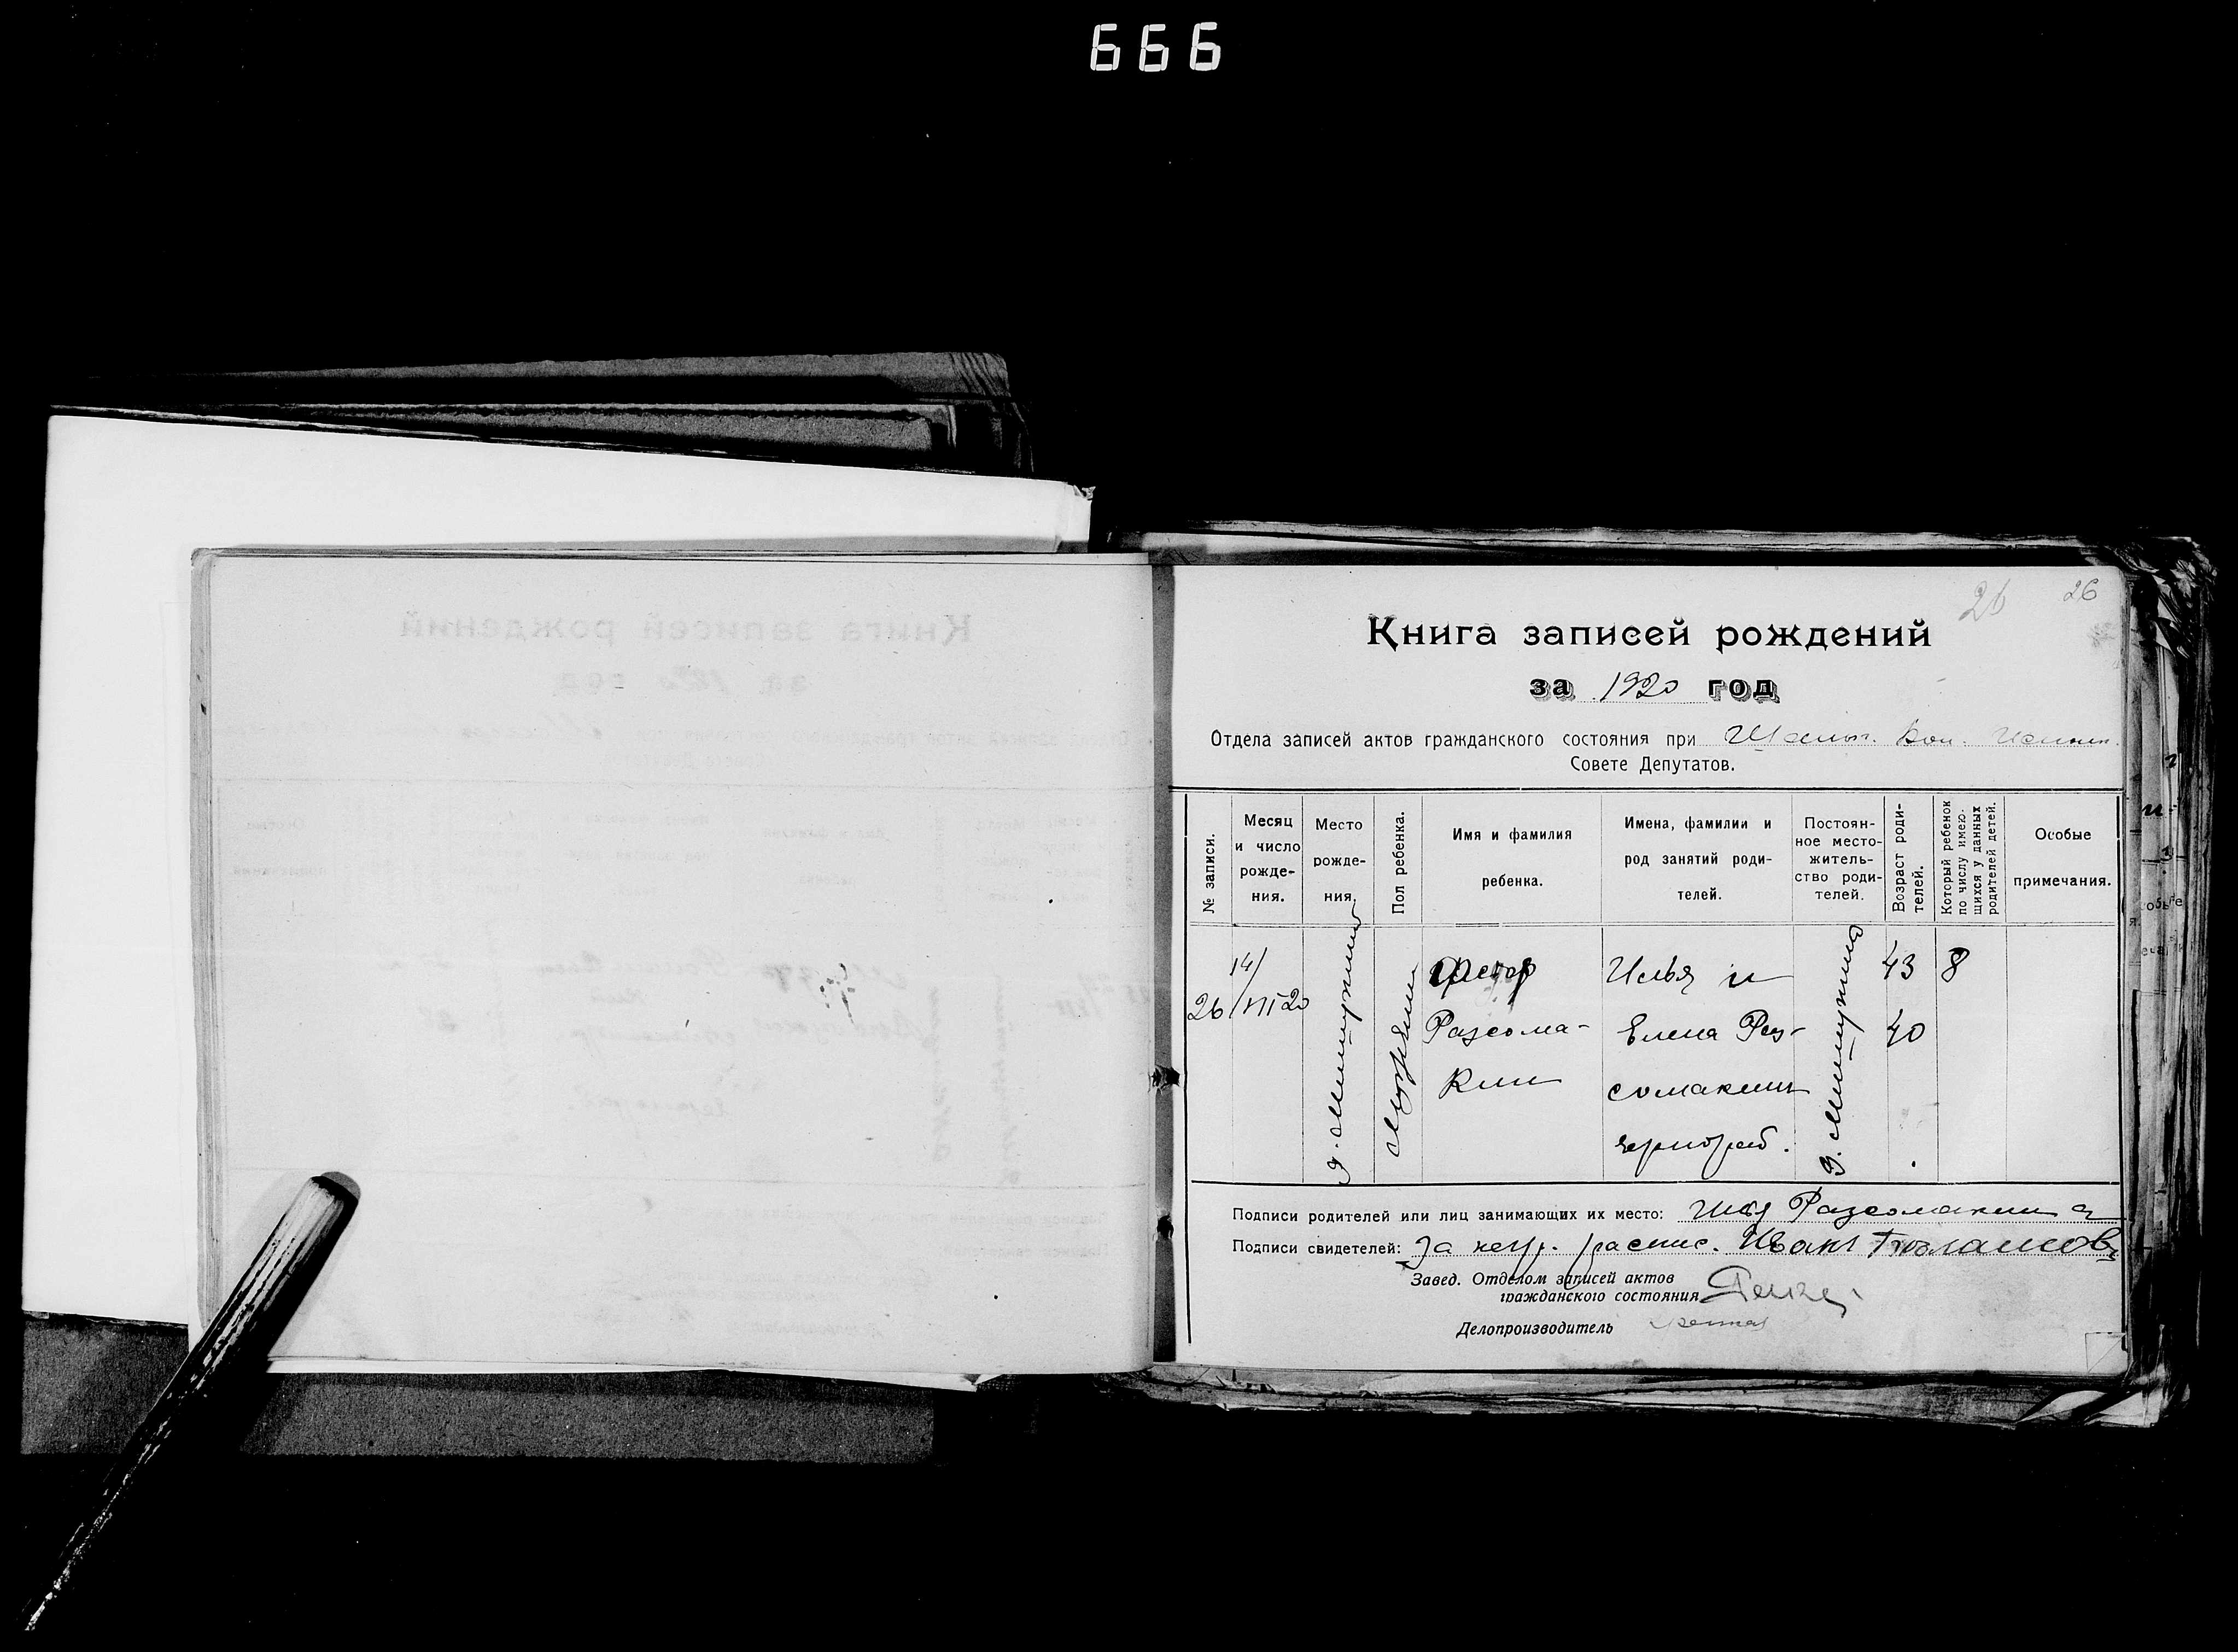 666
26 26
Книга записей рождений
за 1920 год
Отдела записей актов гражданского состояния при
Совете Депутатов.
№ записи.
Месяц
и число
рожде-
ния.
Место
рожде-
ния.
Пол ребенка.
Имя и фамилия
ребенка.
Имена, фамилии и
род занятий роди-
телей.
Постоян-
ное место-
житель-
ство роди-
телей.
Возраст роди-
телей.
Который ребенок
по числу имею-
щихся у данных
родителей детей.
Особые
примечания.
26
14/VIII 20
Федор
Разсома-
кин
Илья и
Елена Раз-
сомакины
чернораб.
43
40
8
Подписи родителей или лиц занимающих их место: Илья Разсомакин а
Подписи свидетелей: За негр. распис. Иванъ
Завед. Отделом записей актов
гражданского состояния
Делопроизводитель